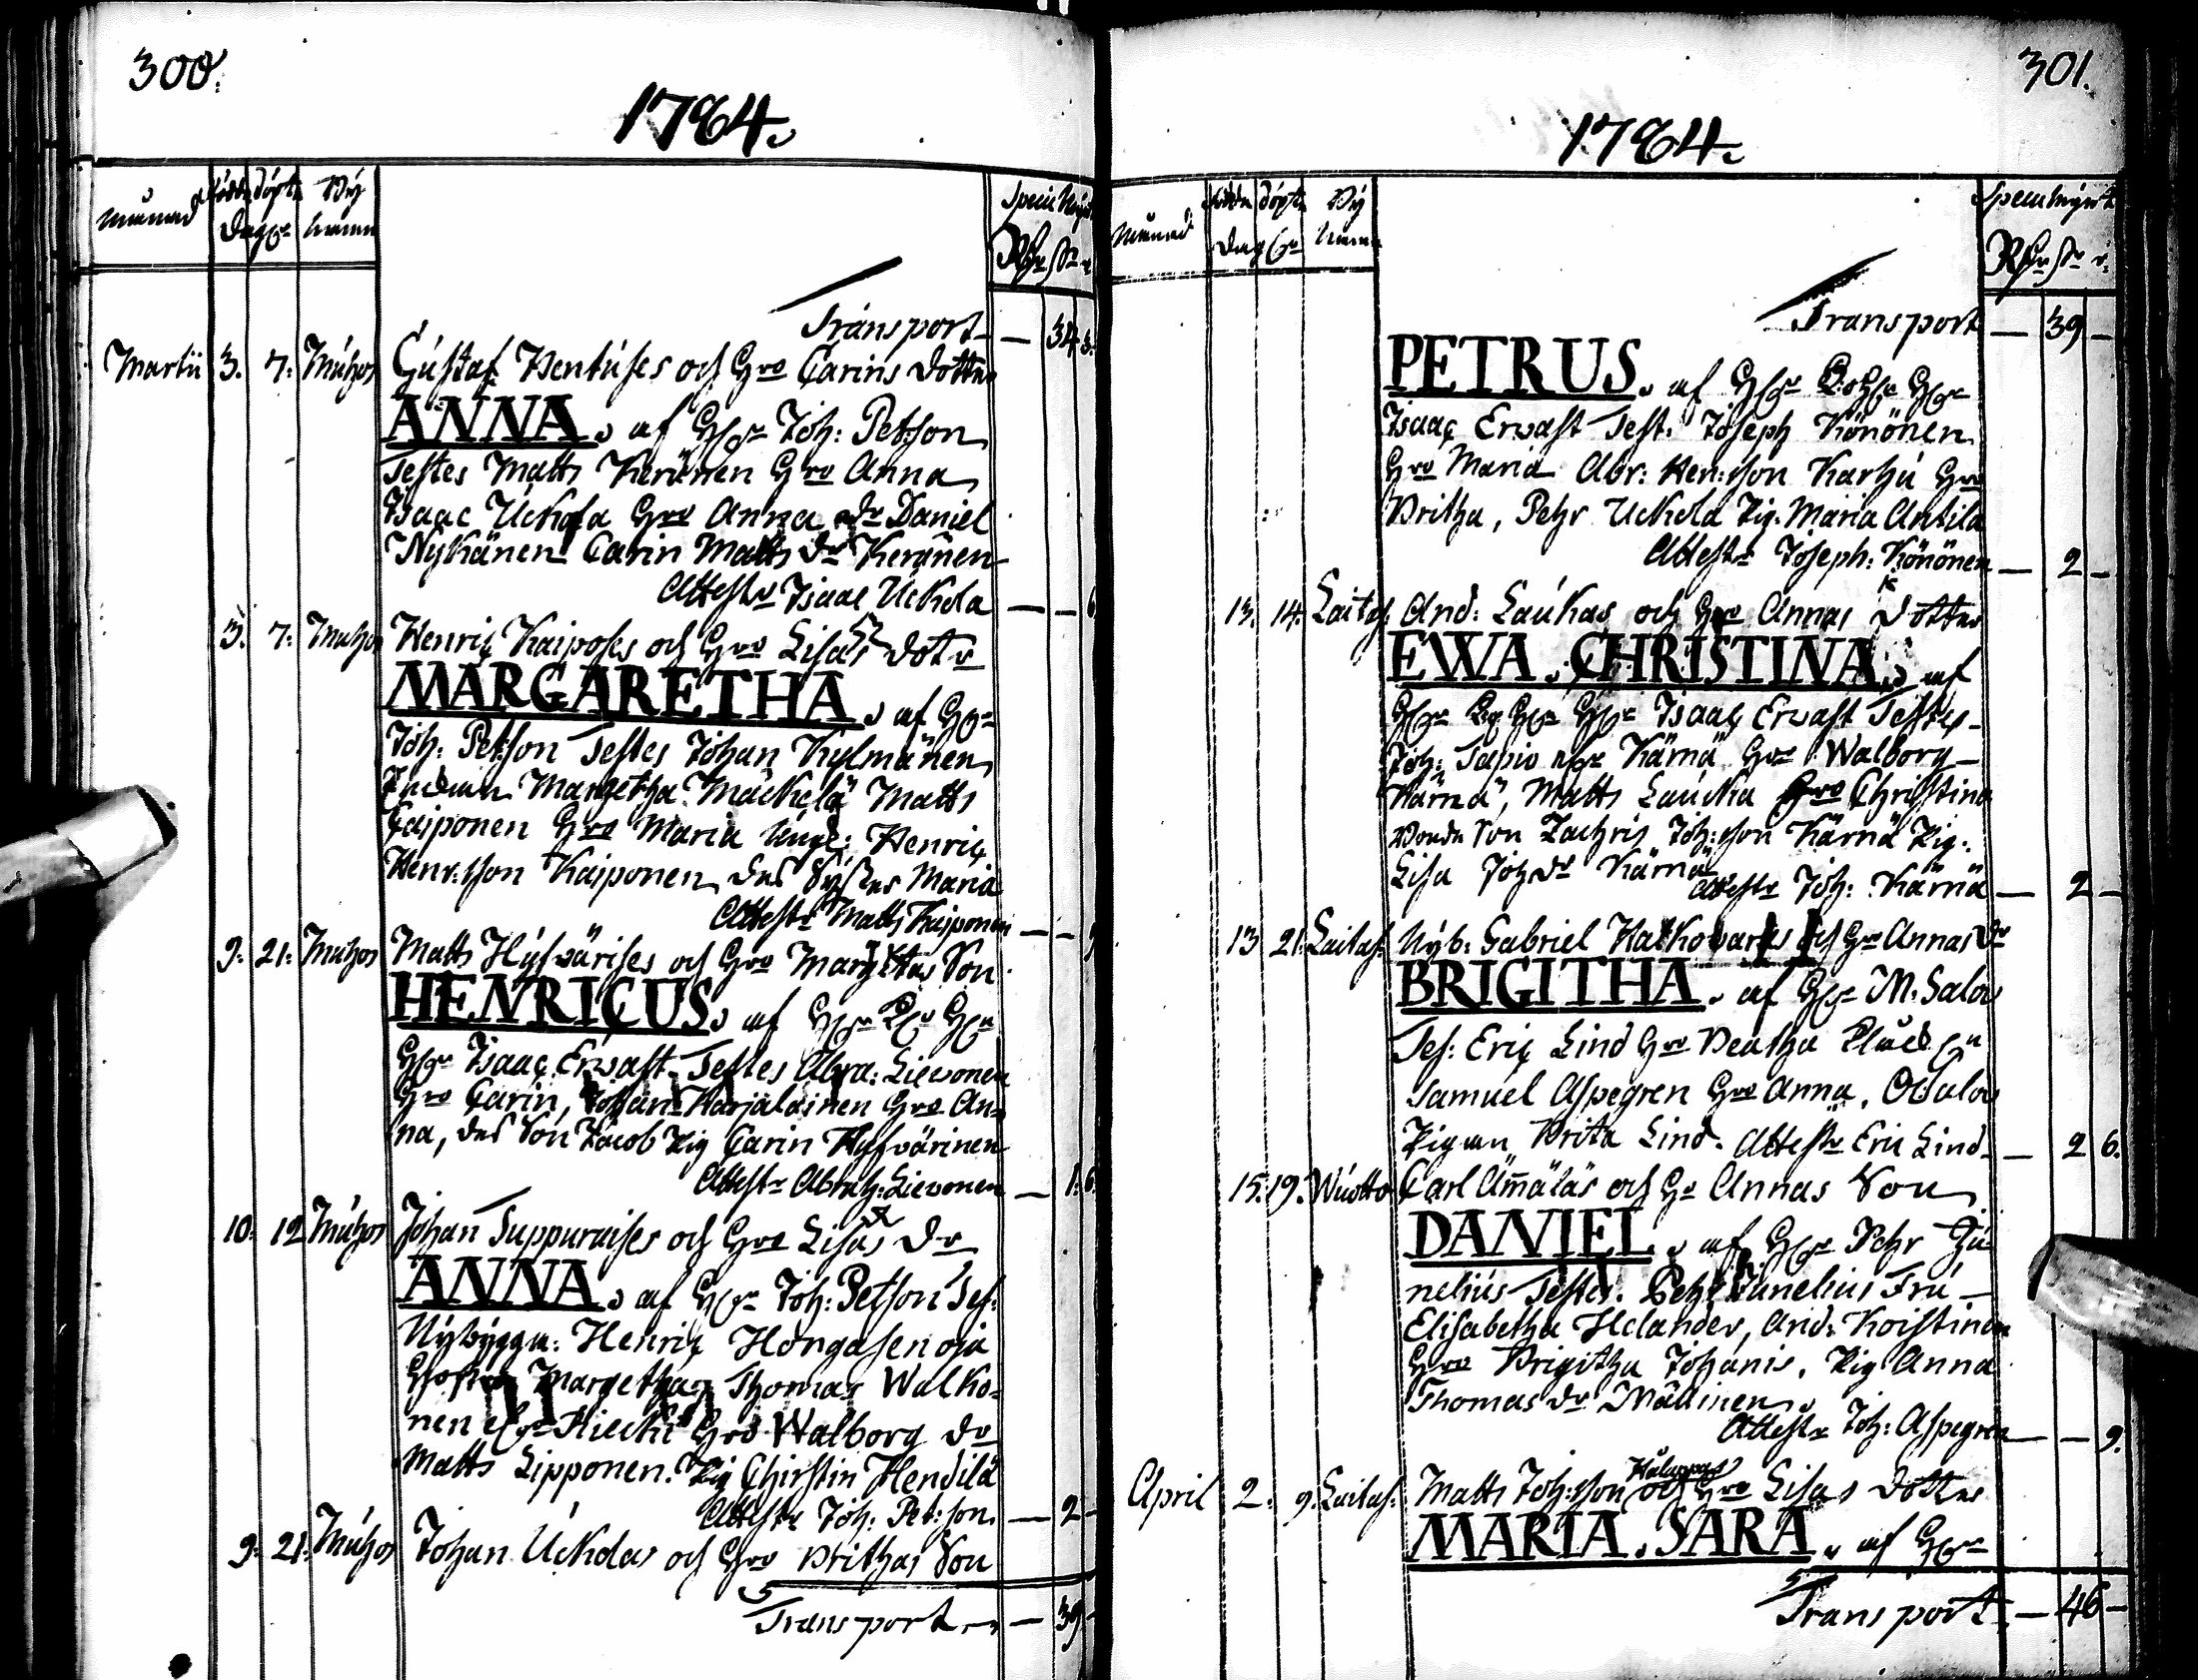 300.
1784.
Månad
födde
döpte
Dagar
By
namn
Transport — 34. 3.
Martii 3. 7: Muhos Gustaf Pentuses och Hro Carins dotter
ANNA. af
Joh: Petson
Testes Matts Keränen Hro Anna
Isaac Uckola Hro Anna dr Daniel
Nykänen Carin Matts dr Keränen
Attestr Isaac Uckola — — 6
3. 7: Muhos Henric Kaiposes och Hro Lisas dotr
MARGARETHA. af
Joh: Petson Testes Johan Kylmänen
Margetha Mäckelä Matts
Caiponen Hro Maria Henric
Henr:son Kaiponen des Syster Maria
Attestr Matts Kaiponen — —
9. 21: Muhos Matts Hyfvärises och Hro Margetas Son
HENRICUS. af
Isaac Erwast Testes Abra: Lievonen
Hro Carin, Johan Karjalainen Hro An=
na, des Son Jacob Pig Carin Hyfvärinen
Attestr Abrah: Lievonen — 1. 6.
10. 12 Muhos Johan Suppuraises och Hro Lisas Dr
ANNA. af Joh: Petson Tes:
Nybyggn: Henric Hongasenoja
Margetha Thomas Walko=
nen Hro Walborg dr
Matts Lipponen. Pig Chirstin Hendilä
Attestr Joh: Pet:son — 2 —
9. 21: Muhos Johan Uckolas och Hro Brithas Son
Transport — 39
301.
1784.
Månad
födde
döpte
Dagar
By
namn
Transport — 39 —
PETRUS. af
Isaac Erwast Test: Joseph Könönen
Hro Maria Abr: Hen:son Karhu Hro
Britha, Pehr Uckola Pig: Maria Antila
Attestr Joseph: Könönen — 2 —
13. 14. Laitas: And: Laukas och Hro Annas Dotter
EWA. CHRISTINA. af
Isaac Erwast Testes
Joh: Tapio Kärnä Hro Walborg
Kärnä, Matts Lauckia Hro Christina
Bonde Son Zachris Joh:son Kärnä Pig:
Lisa Joh dr Kärnä
Attestr Joh: Kärnä — 2 —
13 21. Laitas: Nyb: Gabriel Hatkowares och Hro Annas Dr
BRIGITHA. af M: Salov
Tes: Eric Lind Hro Beatha
Samuel Aspegren Hro Anna,
Pigan Brita Lind. Attestr Eric Lind — 2 6.
15. 19. Wuotto Carl Ämäläs och Hr Annas Son
DANIEL. af Pehr Ju=
nelius Testes. Pehr Junelius Fru
Elisabetha Helander, And: Koistinen
Hro Brigitha Johanis. Pig Anna
Thomas dr Määinen.
Attestr Joh: Aspegren — — 9.
April 2. 9. Laitas: Matts Joh:son och Hro Lisas Dotter
MARIA. SARA. af
Transport — 46 —